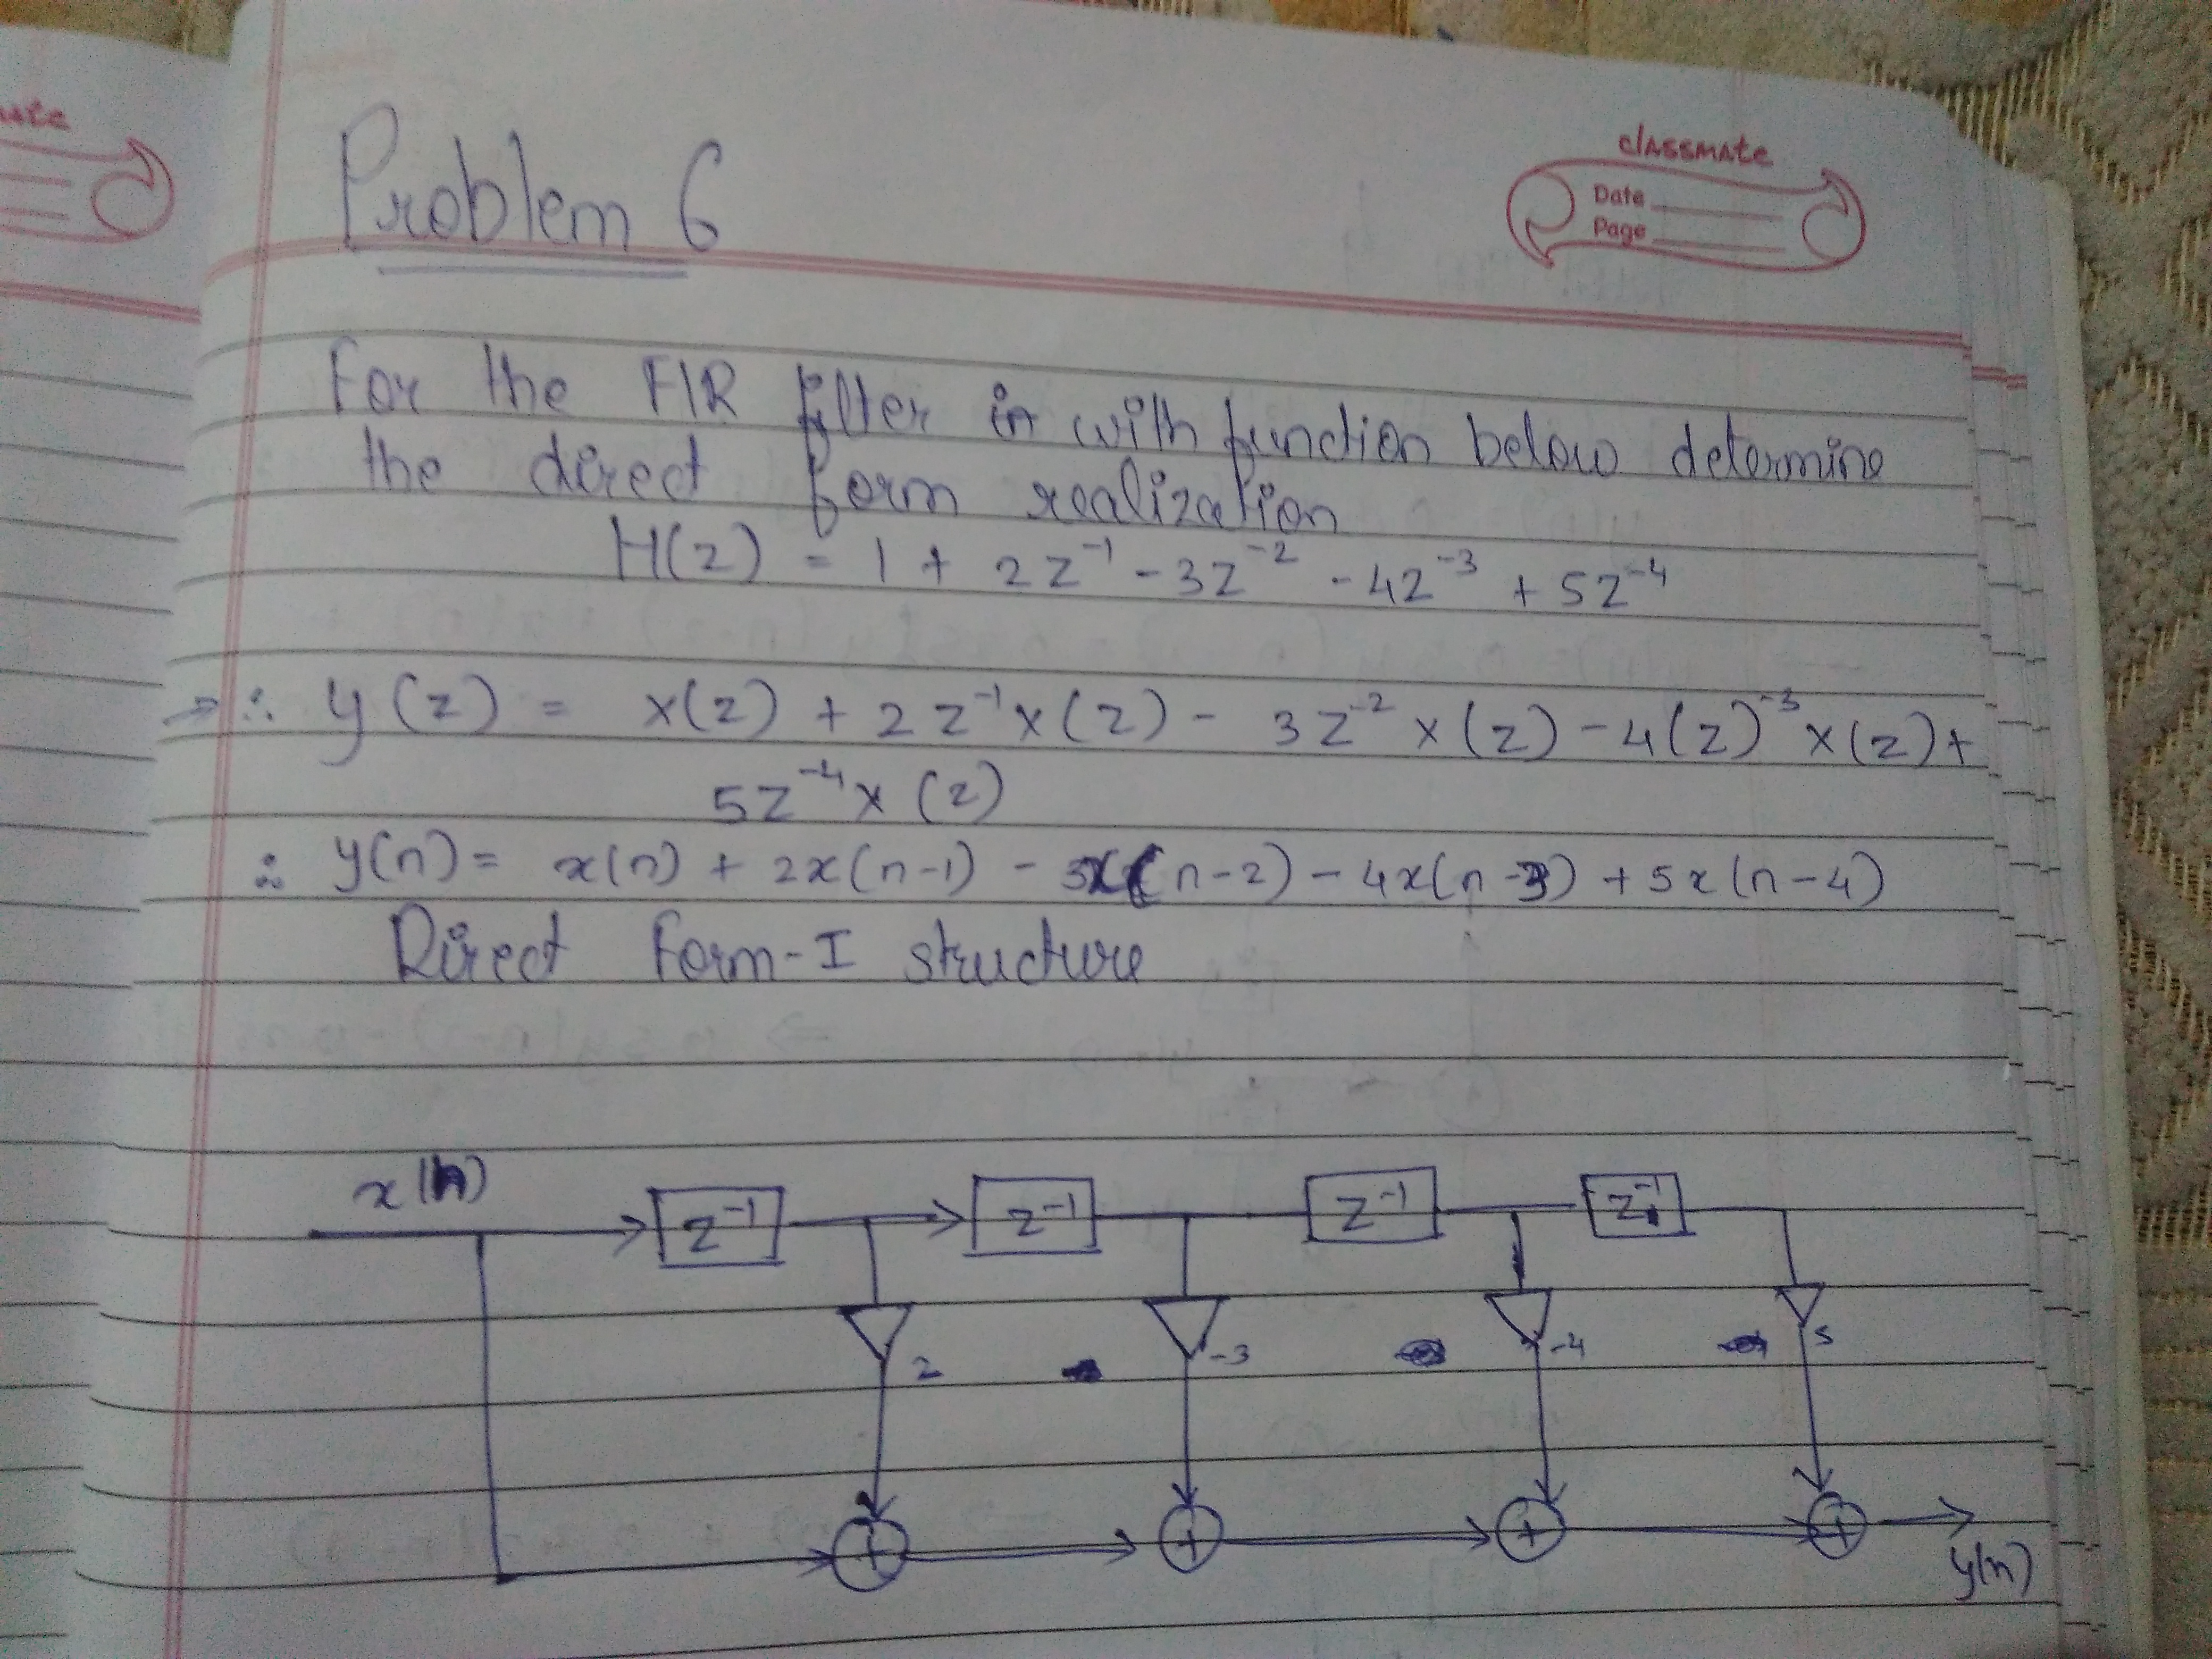 uate
classmate
Date
Page
Problem 6
For the FIR filter in with function below determine
the direct form realization
H(z) = 1 + 2z⁻¹ - 3z⁻² - 4z⁻³ + 5z⁻⁴
⇒ ∴ y(z) = x(z) + 2z⁻¹x(z) - 3z⁻² x(z) - 4(z)⁻³x(z) +
5z⁻⁴x(z)
∴ y(n) = x(n) + 2x(n-1) - 3x(n-2) - 4x(n-3) + 5x(n-4)
Direct Form-I structure
x(n)
z⁻¹ z⁻¹ z⁻¹ z⁻¹
2 -3 -4 5
+ + + +
y(n)